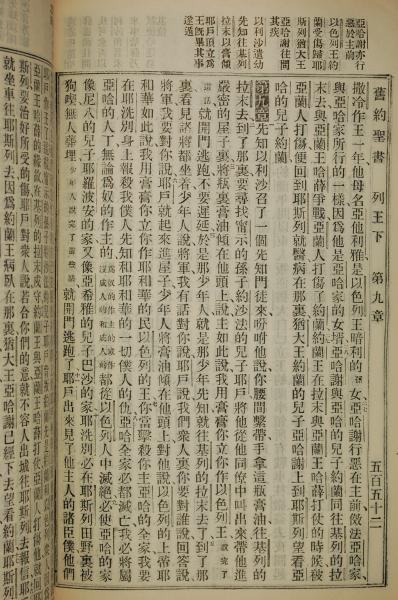 舊約聖書 列王下 第九章 五百五十二
亞哈謝亦行
惡於主前
以色列王約
蘭受傷歸耶
斯列猶大王
亞哈謝往問
其疾
以利沙遣幼
先知往基列
拉末以膏傾
耶戶頂立為
王既畢其事
遂遁
撒冷作王一年他母名亞他利雅是以色列王暗利的女亞哈謝行惡在主前效法亞哈家
與亞哈家所行的一樣因為他是亞哈家的女壻亞哈謝與亞哈的兒子約蘭同往基列的拉
末去與亞蘭王哈薛爭戰亞蘭人打傷了約蘭約蘭王在拉末與亞蘭王哈薛打仗的時候被
亞蘭人打傷便回到耶斯列就醫病在那裏猶大王約蘭的兒子亞哈謝上到耶斯列望看亞
哈的兒子約蘭
第九章先知以利沙召了一個先知門徒來吩咐他說你腰間繫帶手拿這瓶膏油往基列的
拉末去到了那裏要尋找甯示的孫子約沙法的兒子耶戶將他從他同僚中叫出來帶他進
嚴密的屋子裏將瓶裏膏油傾在他頭上說主如此說我用膏膏你立你作以色列王說完了
這話就開門逃跑不要遲延於是那少年人就是那少年先知就往基列的拉末去了到了那
裏看見諸將都坐着少年人說將軍我有話對你說耶戶說我們衆人裏你要對誰說回答說
將軍我要對你說耶戶就起來進屋子少年人將膏油傾在他頭上對他說以色列的上帝耶
和華如此說我用膏膏你立你作耶和華的民以色列的王你當擊殺你主亞哈的全家我要
在耶洗別身上報殺我僕人先知和耶和華的一切僕人的仇亞哈全家必都滅亡我必將屬
亞哈的人丁無論為奴的作主的都從以色列人中滅絕必使亞哈的家
像尼八的兒子耶羅波安的家又像亞希雅的兒子巴沙的家耶洗別必在耶斯列田野裏被
狗喫無人葬埋少年人說完了這話就開門逃跑耶戶出來見了他主人的諸臣僕他們
耶戶說若合你們的意就不容人出城往耶斯列去報信耶戶
就坐車往耶斯列去因為約蘭王病臥在那裏猶大王亞哈謝已經下去望看約蘭耶斯列